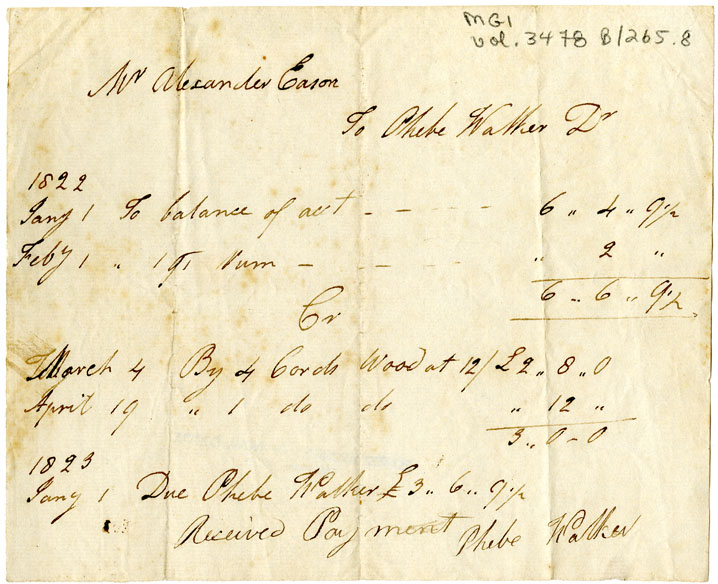 MG1
vol. 3478 B/265.8
Mr Alexander Eason
To Phebe Walker Dr
1822
Jany 1 To balance of acct - - - - 6 " 4 " 9½
Feby 1 " 1 qt Rum - - - " 2 "
6 " 6 " 9½
Cr
March 4 By 4 Cords Wood at 12/ £2 " 8 " 0
April 19 " 1 do do " 12 "
3 " 0 - 0
1823
Jany 1 Due Phebe Walker £3 " 6 " 9½
Received Payment Phebe Walker